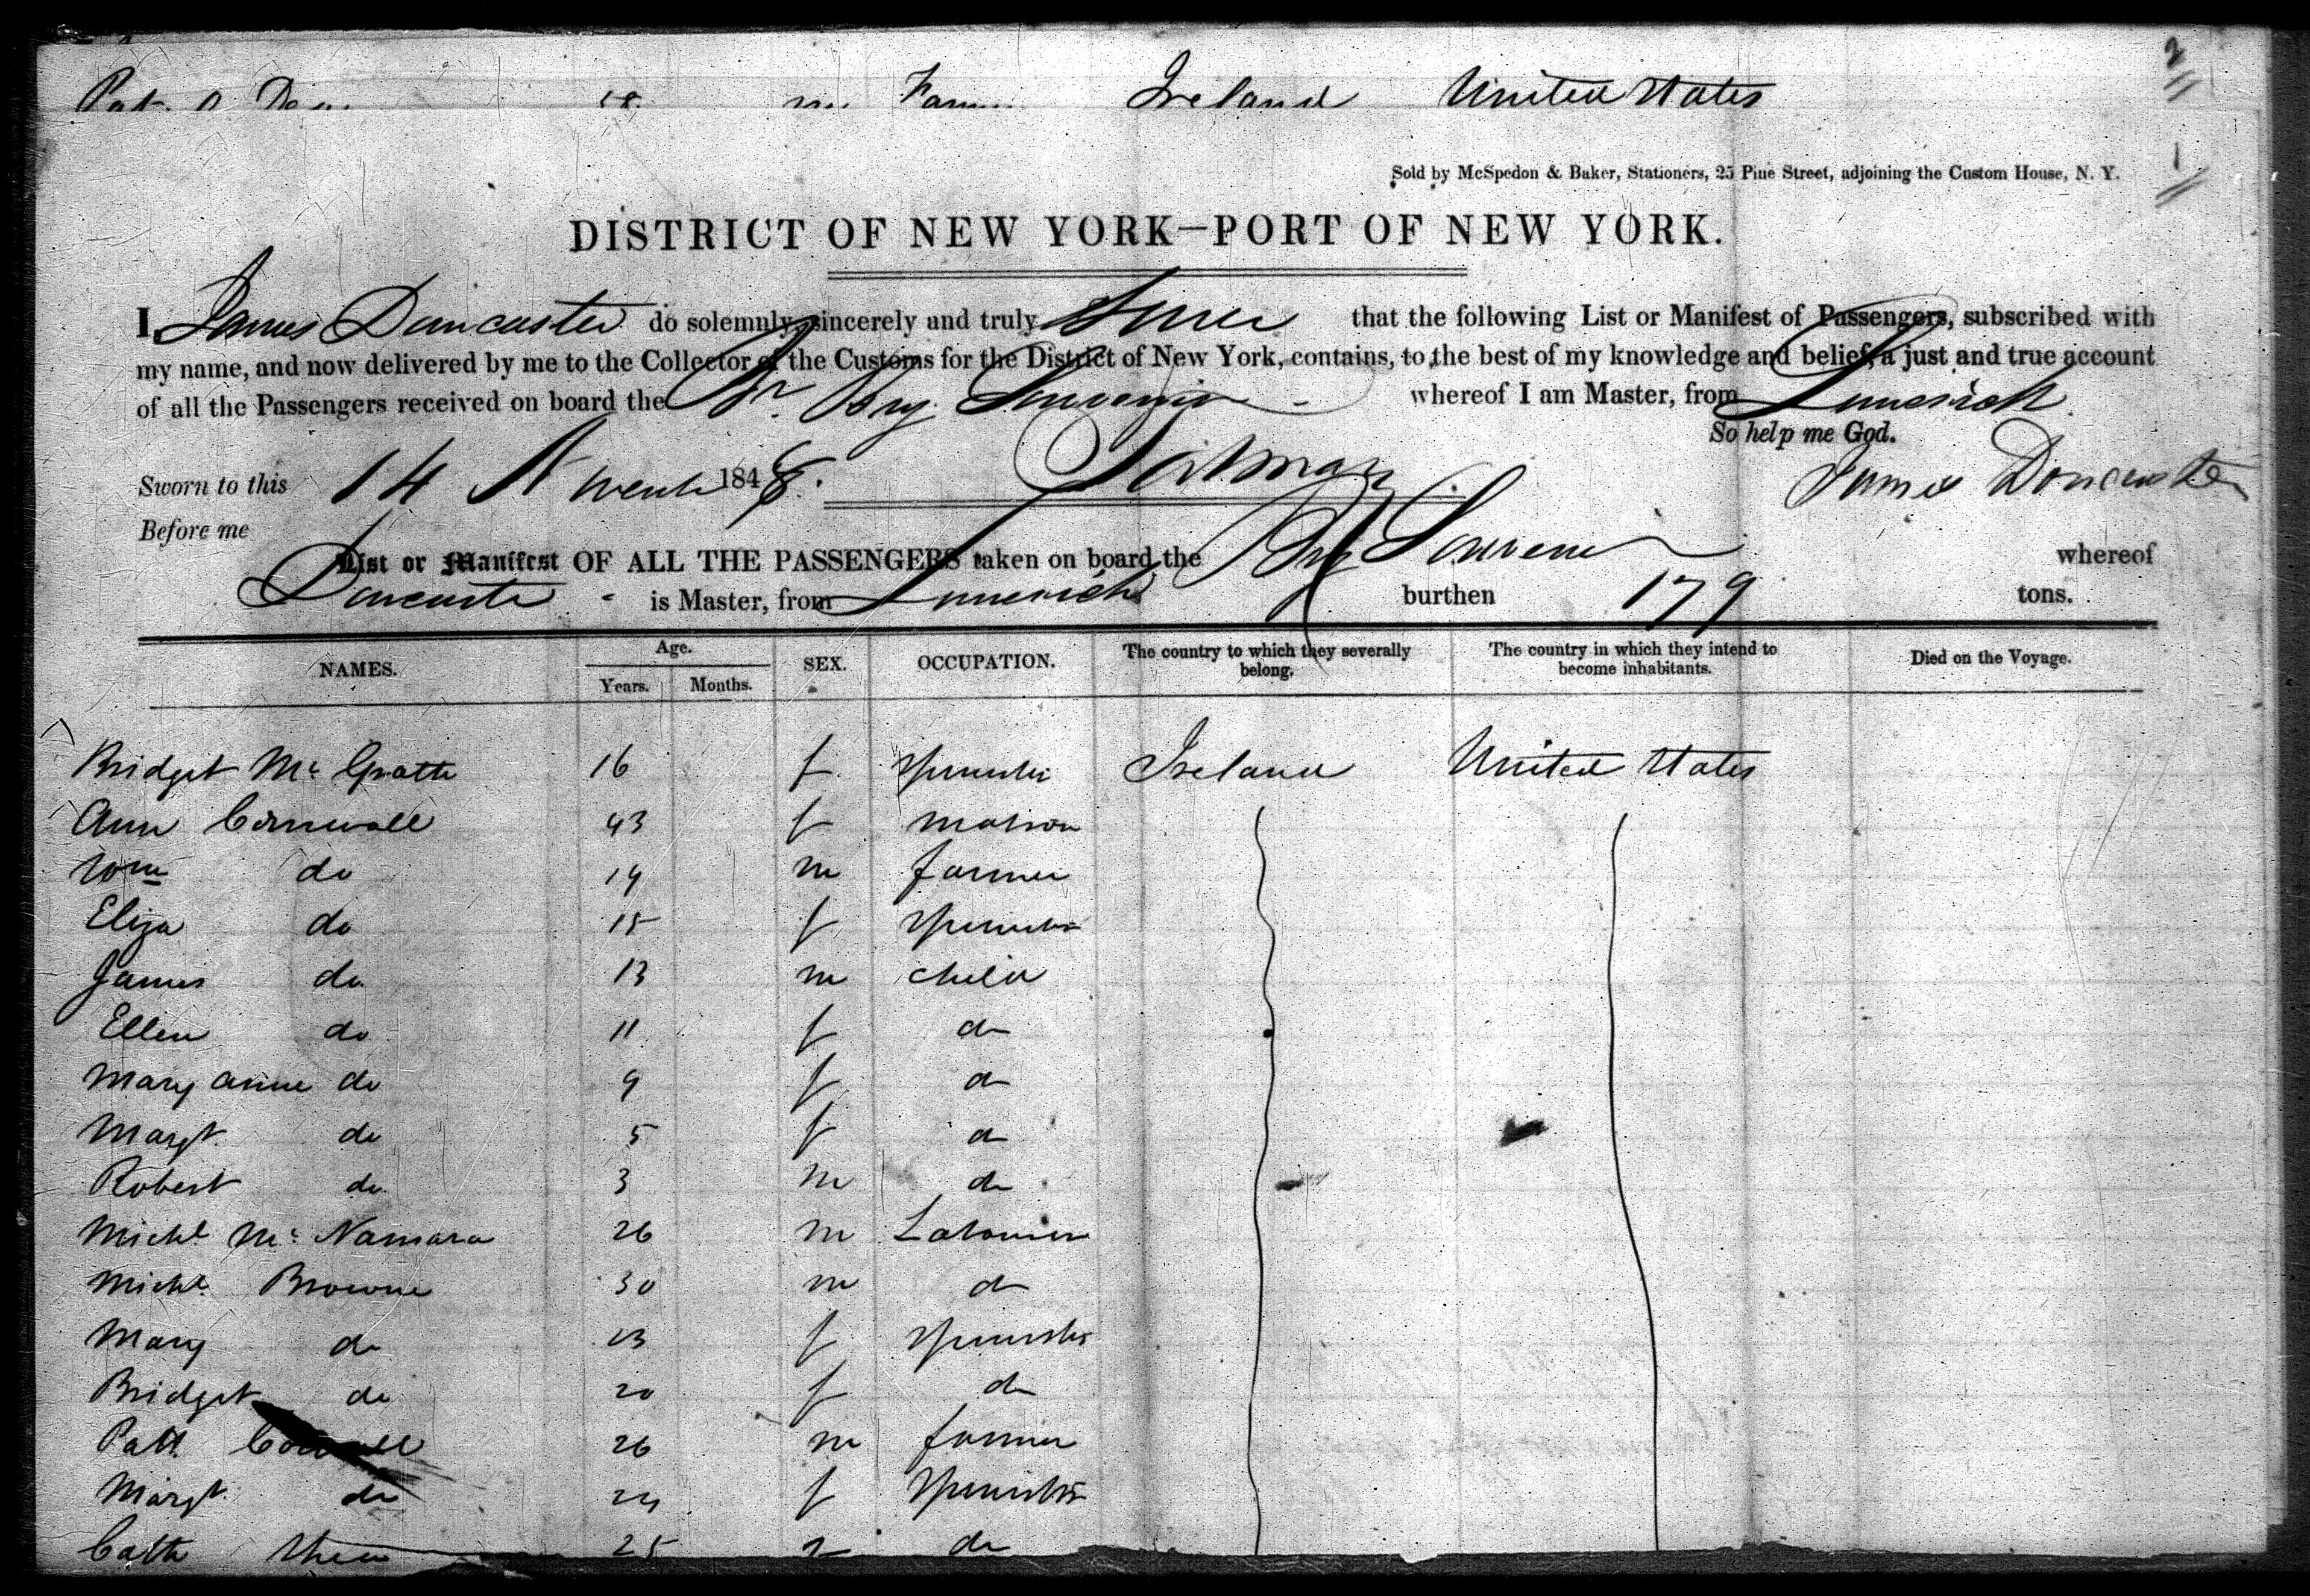 Ireland United States
Sold by McSpedon & Baker, Stationers, 25 Pine Street, adjoining the Custom House, N. Y.
DISTRICT OF NEW YORK—PORT OF NEW YORK.
I, James Doncaster do solemnly, sincerely and truly swear that the following List or Manifest of Passengers, subscribed with
my name, and now delivered by me to the Collector of the Customs for the District of New York, contains, to the best of my knowledge and belief, a just and true account
of all the Passengers received on board the Br. Brig Souvenir whereof I am Master, from Limerick
So help me God.
Sworn to this 14 1848. James Doncaster
Before me
List or Manifest OF ALL THE PASSENGERS taken on board the Brig Souvenir whereof
Doncaster is Master, from Limerick burthen 179 tons.
NAMES. Age. SEX. OCCUPATION. The country to which they severally belong. The country in which they intend to become inhabitants. Died on the Voyage.
Years. Months.
Bridget Mc Grath 16 f Spinster Ireland United States
Ann Cornwall 43 f matron
Wm do 19 m farmer
Eliza do 15 f Spinster
James do 13 m child
Ellen do 11 f do
Mary Anne do 9 f do
Margt. do 5 f do
Robert do 3 m do
Michl Mc Namara 26 m Labourer
Michl. Browne 30 m do
Mary do f Spinster
Bridget do 20 f do
Patt 26 m farmer
Margt. do 24 f Spinster
Cath Shea 25 do